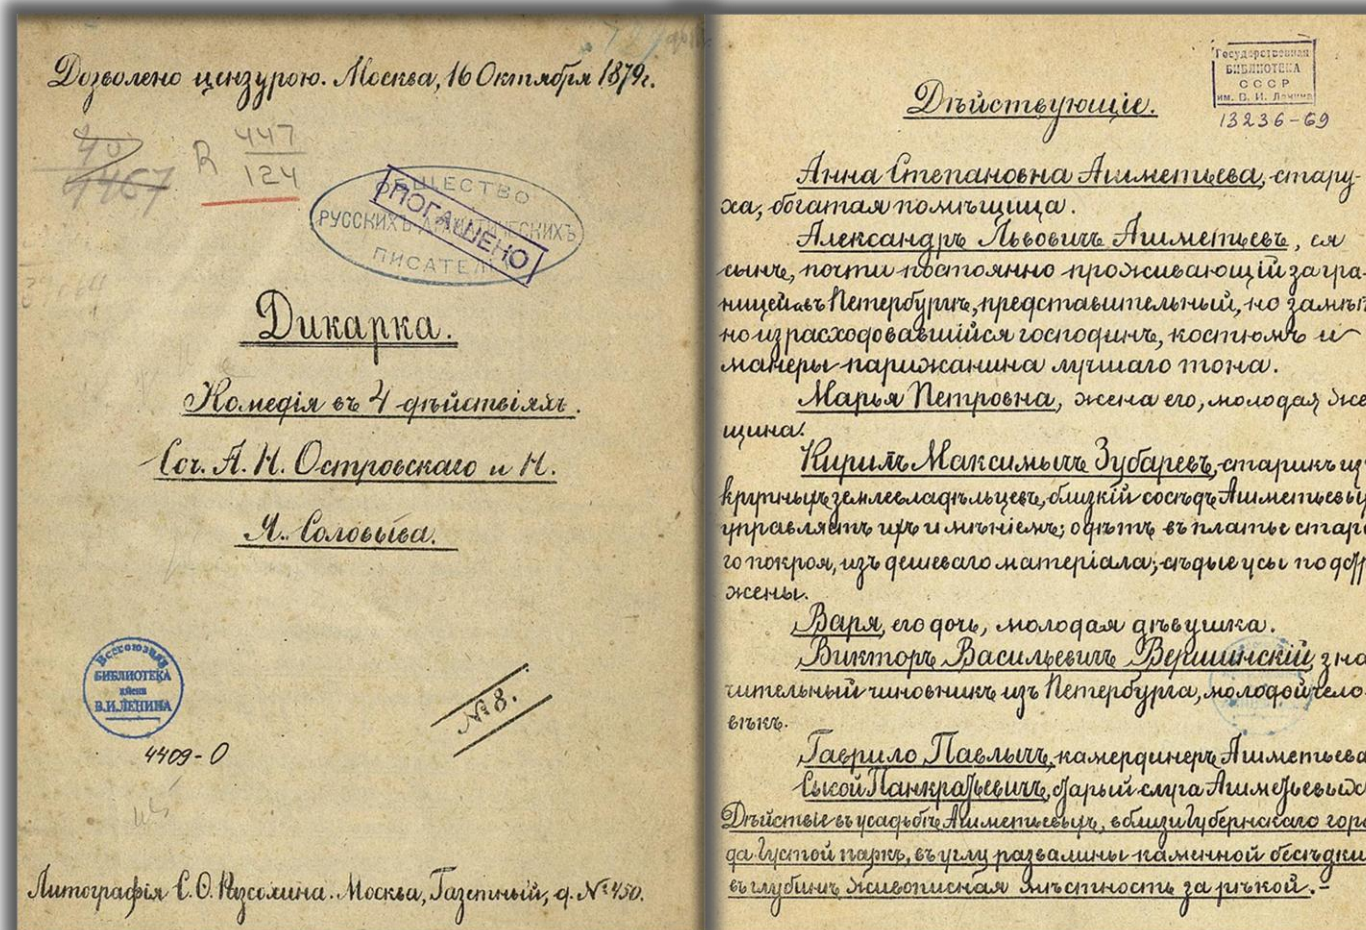 Дозволено цензурою. Москва, 16 Октября 1879г.
40
4467
R 447
124
ОБЩЕСТВО
РУССКИХЪ ДРАМАТИЧЕСКИХЪ
ПИСАТЕЛ
ПОГАШЕНО
Дикарка.
Комедія въ 4 дѣйствіяхъ.
Соч. А. Н. Островскаго и Н.
Я. Соловьева.
Всесоюзная
БИБЛИОТЕКА
имени
В.И.ЛЕНИНА
№ 8.
4409-О
Литографія С. О. Москва, Газетный, д. №
Государственная
БИБЛИОТЕКА
СССР
им. В. И. Ленина
13236-69
Дѣйствующіе.
Анна Степановна Ашметьева, стару-
ха, богатая помѣщица.
Александръ Львовичъ Ашметьевъ, ея
сынъ, почти постоянно проживающій загра-
ницей и въ Петербургѣ, представительный, но замѣт
но израсходовавшійся господинъ, костюмъ и
манеры парижанина лучшаго тона.
Марья Петровна, жена его, молодая же
щина.
Кирилъ Максимычъ Зубаревъ, старикъ из
крупныхъ землевладѣльцевъ, близкій сосѣдъ Ашметьевых
управляетъ ихъ имѣніемъ; одѣтъ въ платье стар
го покроя, изъ дешеваго матеріала; сѣдые усы подстр
жены.
Варя, его дочь, молодая дѣвушка.
Викторъ Васильевичъ Вершинскій, зна
чительный чиновникъ изъ Петербурга, молодой чело-
вѣкъ.
Гаврило Павлычъ, камердинеръ Ашметьева
Сысой Панкратьевичъ, старый слуга Ашметьевых
Дѣйствіе въ усадьбѣ Ашметьевыхъ, вблизи губернскаго горо
да Густой паркъ, въ углу развалины каменной бесѣдки
въ глубинѣ живописная мѣстность за рѣкой.-